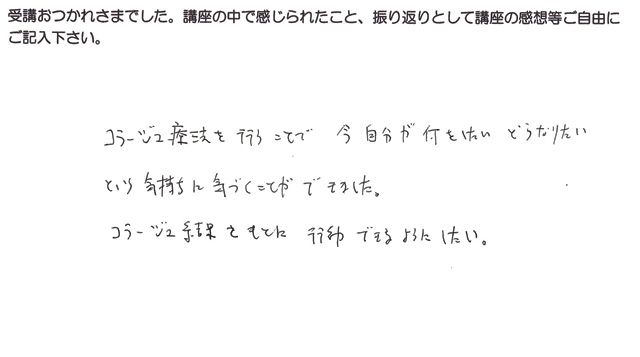 受講おつかれさまでした。講座の中で感じられたこと、振り返りとして講座の感想等ご自由に
ご記入下さい。
コラージュ療法を行うことで 今 自分が 何をしたい どうなりたい
という気持ちに気づくことができました。
コラージュ結果をもとに 行動できるようにしたい。